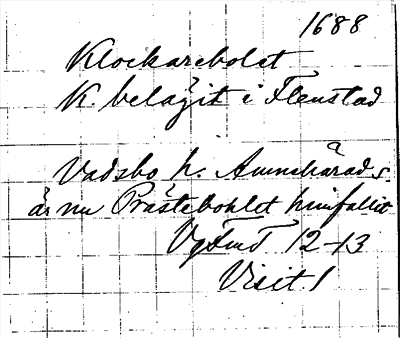 1688
Klockarebolet
K. belägit i Flenstad
Vadsbo h. Amnehärad s.
är nu Prästebohlet hemfallit
VgFmT 12-13
Visit 1